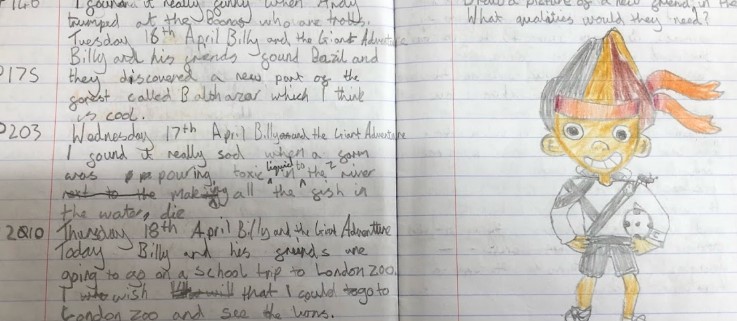 I found it really funny when Andy
trumped at the Boonas who are trolls.
Tuesday 16th April Billy and the Giant Adventure
Billy and his friends found Dazil and
P175 they discovered a new part of the
forest called Balthazar which I think
is cool.
P203 Wednesday 17th April Billy and the Giant Adventure
I found it really sad when a farm
was pouring toxic liquid into the river
next to the making all the fish in
the water die
2010 Thursday 18th April Billy and the Giant Adventure
Today Billy and his friends are
going to go on a school trip to London Zoo.
I wish that I could go to
London Zoo and see the lions.
What qualities would they need?